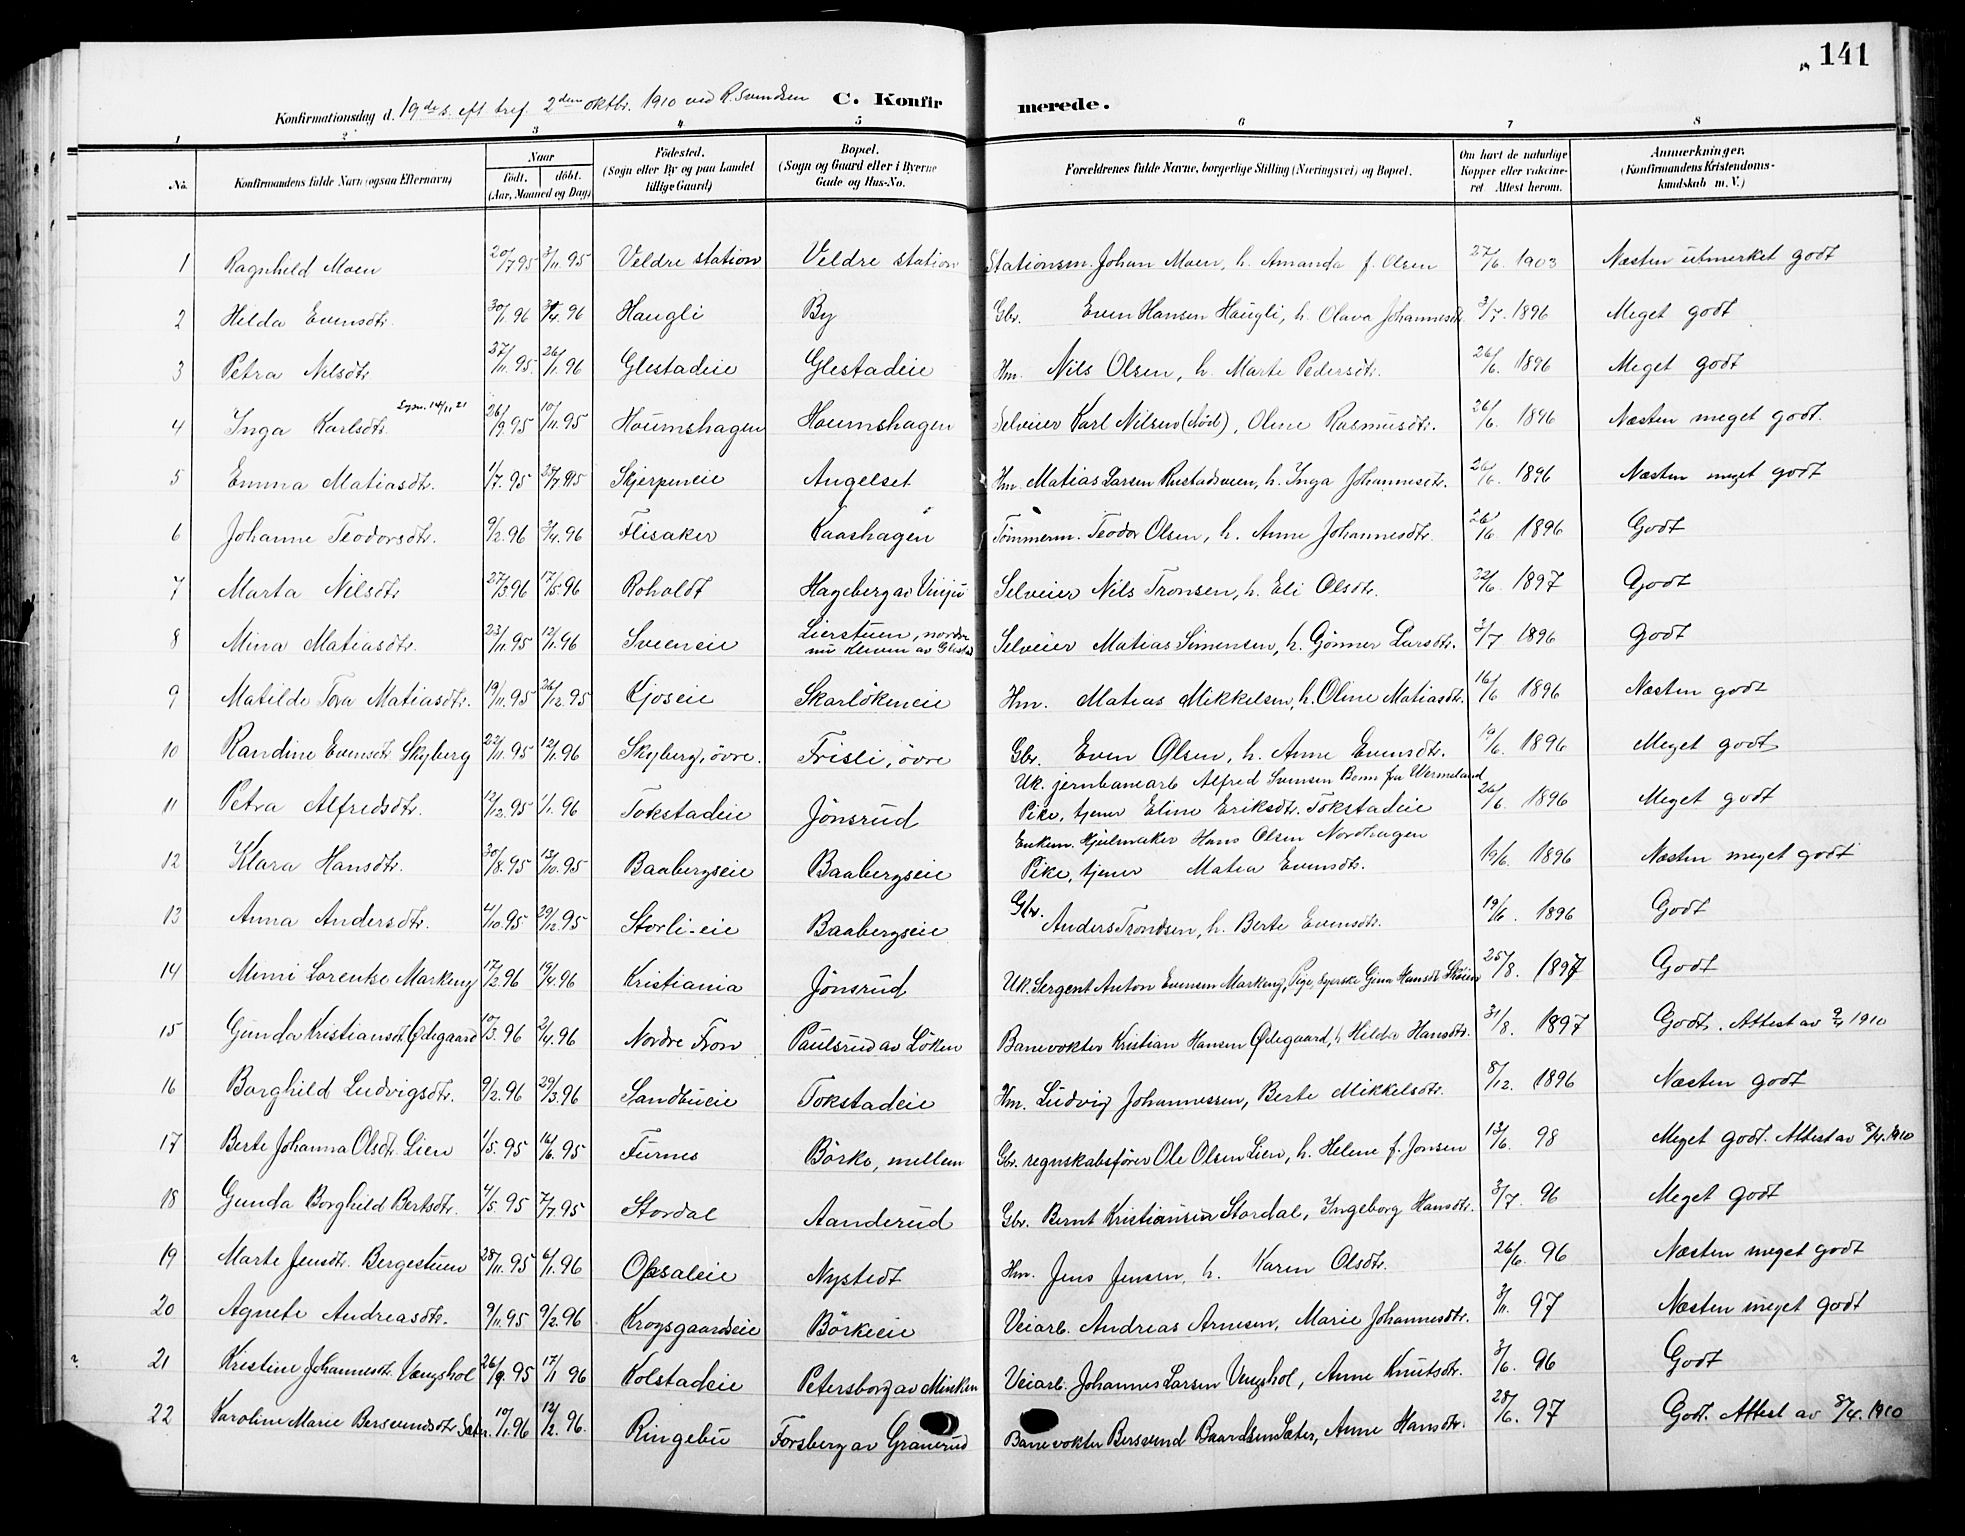 141
Konfirmationsdag d. 19de s. eft tref. 2den oktbr. 1910 ved R. Svendsen C. Konfirmerede.
1 2 3 4 5 6 7 8
No. Konfirmandens fulde Navn (ogsaa Efternavn) Naar født. døbt. (Aar, Maaned og Dag) Fødested. (Sogn eller By og paa Landet tillige Gaard) Bopæl. (Sogn og Gaard eller i Byerne Gade og Hus-No. Forældrenes fulde Navne, borgerlige Stilling (Næringsvei) og Bopæl. Om havt de naturlige Kopper eller vakcineret Attest herom. Anmærkninger. (Konfirmandens Kristendomskundskab m. V.)
1 Ragnhild Moen 20/7 95 3/11 95 Veldre station Veldre station Stationsm. Johan Moen, h. Amanda f. Olsen 27/6 1903 Næsten utmerket godt
2 Hilda Evensdtr. 30/1 96 96 Haugli By Gbr. Even Hansen Haugli, h. Olava Johannesdtr. 3/7 1896 Meget godt
3 Petra Nilsdtr. 27/11 95 26/1 96 Glestadeie Glestadeie Hm. Nils Olsen, h. Marte Pedersdtr. 26/6 1896 Meget godt
4 Inga Karlsdtr. 26/9 95 10/11 95 Houmshagen Houmshagen Selveier Karl Nilsen (død), Oline Rasmusdtr. 26/6 1896 Næsten meget godt.
5 Emma Matiasdtr. 1/7 95 95 Skjerpeneie Angelset Hm. Matias Larsen Rustadsveen, h. Inga Johannesdtr. 26/6 1896 Næsten meget godt
6 Johanne Teodorsdtr. 9/2 96 3/4 96 Flisaker Kaashagen Tömmerm. Teodor Olsen, h. Anne Johannesdtr. 26/6 1896 Godt
7 Marta Nilsdtr. 27/3 96 17/5 96 Roholdt Hageberg av Selveier Nils Tronsen, h. Eli Olsdtr. 22/6 1897 Godt
8 Mina Matiasdtr. 23/11 95 12/1 96 Sveeneie Lierstuen, nordre Selveier Matias Simensen, h. Gönner Larsdtr. 3/7 1896 Godt
nu Kleven av Glestad
9 Matilde Tora Matiasdtr. 19/11 95 26/12 95 Kjoseie Skarlökeneie Hm. Matias Mikkelsen, h. Oline Matiasdtr. 16/6 1896 Næsten godt
10 Randine Evensdtr. Skyberg 22/11 95 12/1 96 Skyberg, övre. Frisli, övre Gbr. Even Olsen, h. Anne Evensdtr. 19/6 1896 Meget godt
Uk. jernbanearb Alfred Svensen Bonn fra Wermeland
11 Petra Alfredsdtr. 12/12 95 1/1 96 Tokstadeie Jönsrud Pike, tjener Eline Eriksdtr. Tokstadeie 26/6 1896 Meget godt
Enkem. Hjulmaker Hans Olsen Nordhagen
12 Klara Hansdtr. 30/8 95 13/10 95 Baabergseie Baabergseie Pike, tjener Matea Evensdtr. 19/6 1896 Næsten meget godt
13 Anna Andersdtr. 4/10 95 29/12 95 Storli-eie Baabergseie Gbr. Anders Trondsen, h. Berte Evensdtr. 19/6 1896 Godt
14 Mimi Lorentse Markeng 17/2 96 19/4 96 Kristiania Jönsrud Uk. Sergent Anton Evensen Markeng, Pige, syerske Gina Hansdtr. 25/8 1897 Godt
15 Gunda Kristiansdt. Ödegaard 10/3 96 2/4 96 Nordre Fron Paulsrud av Löken Banevokter Kristian Hansen Ödegaard, h. Hilda Hansdtr. 31/8 1897 Godt. Attest av 1910
16 Borghild Ludvigsdtr. 9/2 96 29/3 96 Sandbueie Tokstadeie Hm. Ludvig Johannessen, Berte Mikkelsdtr. 8/12 1896 Næsten godt
17 Berte Johanna Olsdtr. Lien 1/5 95 16/6 95 Furnes Börke, mellem Gbr. regnskabsförer Ole Olsen Lien, h. Helene f. Jonsen 13/6 98 Meget godt. Attest av 8/4 1910
18 Gunda Borghild Berntsdtr. 4/5 95 7/7 95 Stordal Aanderud Gbr. Bernt Kristiansen Stordal, Ingeborg Hansdtr. 3/7 96 Meget godt
19 Marte Jensdtr. Bergestuen 28/11 95 6/1 96 Opsaleie Nystedt Hm. Jens Jensen, h. Karen Olsdtr. 26/6 96 Næsten meget godt
20 Agnete Andreasdtr. 9/11 95 9/2 96 Krogsgaardseie Börkeeie Veiarb. Andreas Arnesen, Marie Johannesdtr. 3/11 97 Næsten meget godt
21 Kristine Johannesdtr. Vængshol 26/9 95 17/1 96 Kolstadeie Petersborg av Minken Veiarb. Johannes Larsen Vengshol, Anne Knutsdtr. 3/6 96 Godt
22 Karoline Marie Bersvendsdtr. Sæter. 10/1 96 12/2 96 Ringebu Forsberg av Granerud Banevokter Bersvend Baardsen Sæter, Anne Hansdtr. 28/6 97 Godt. Attest av 8/4 1910